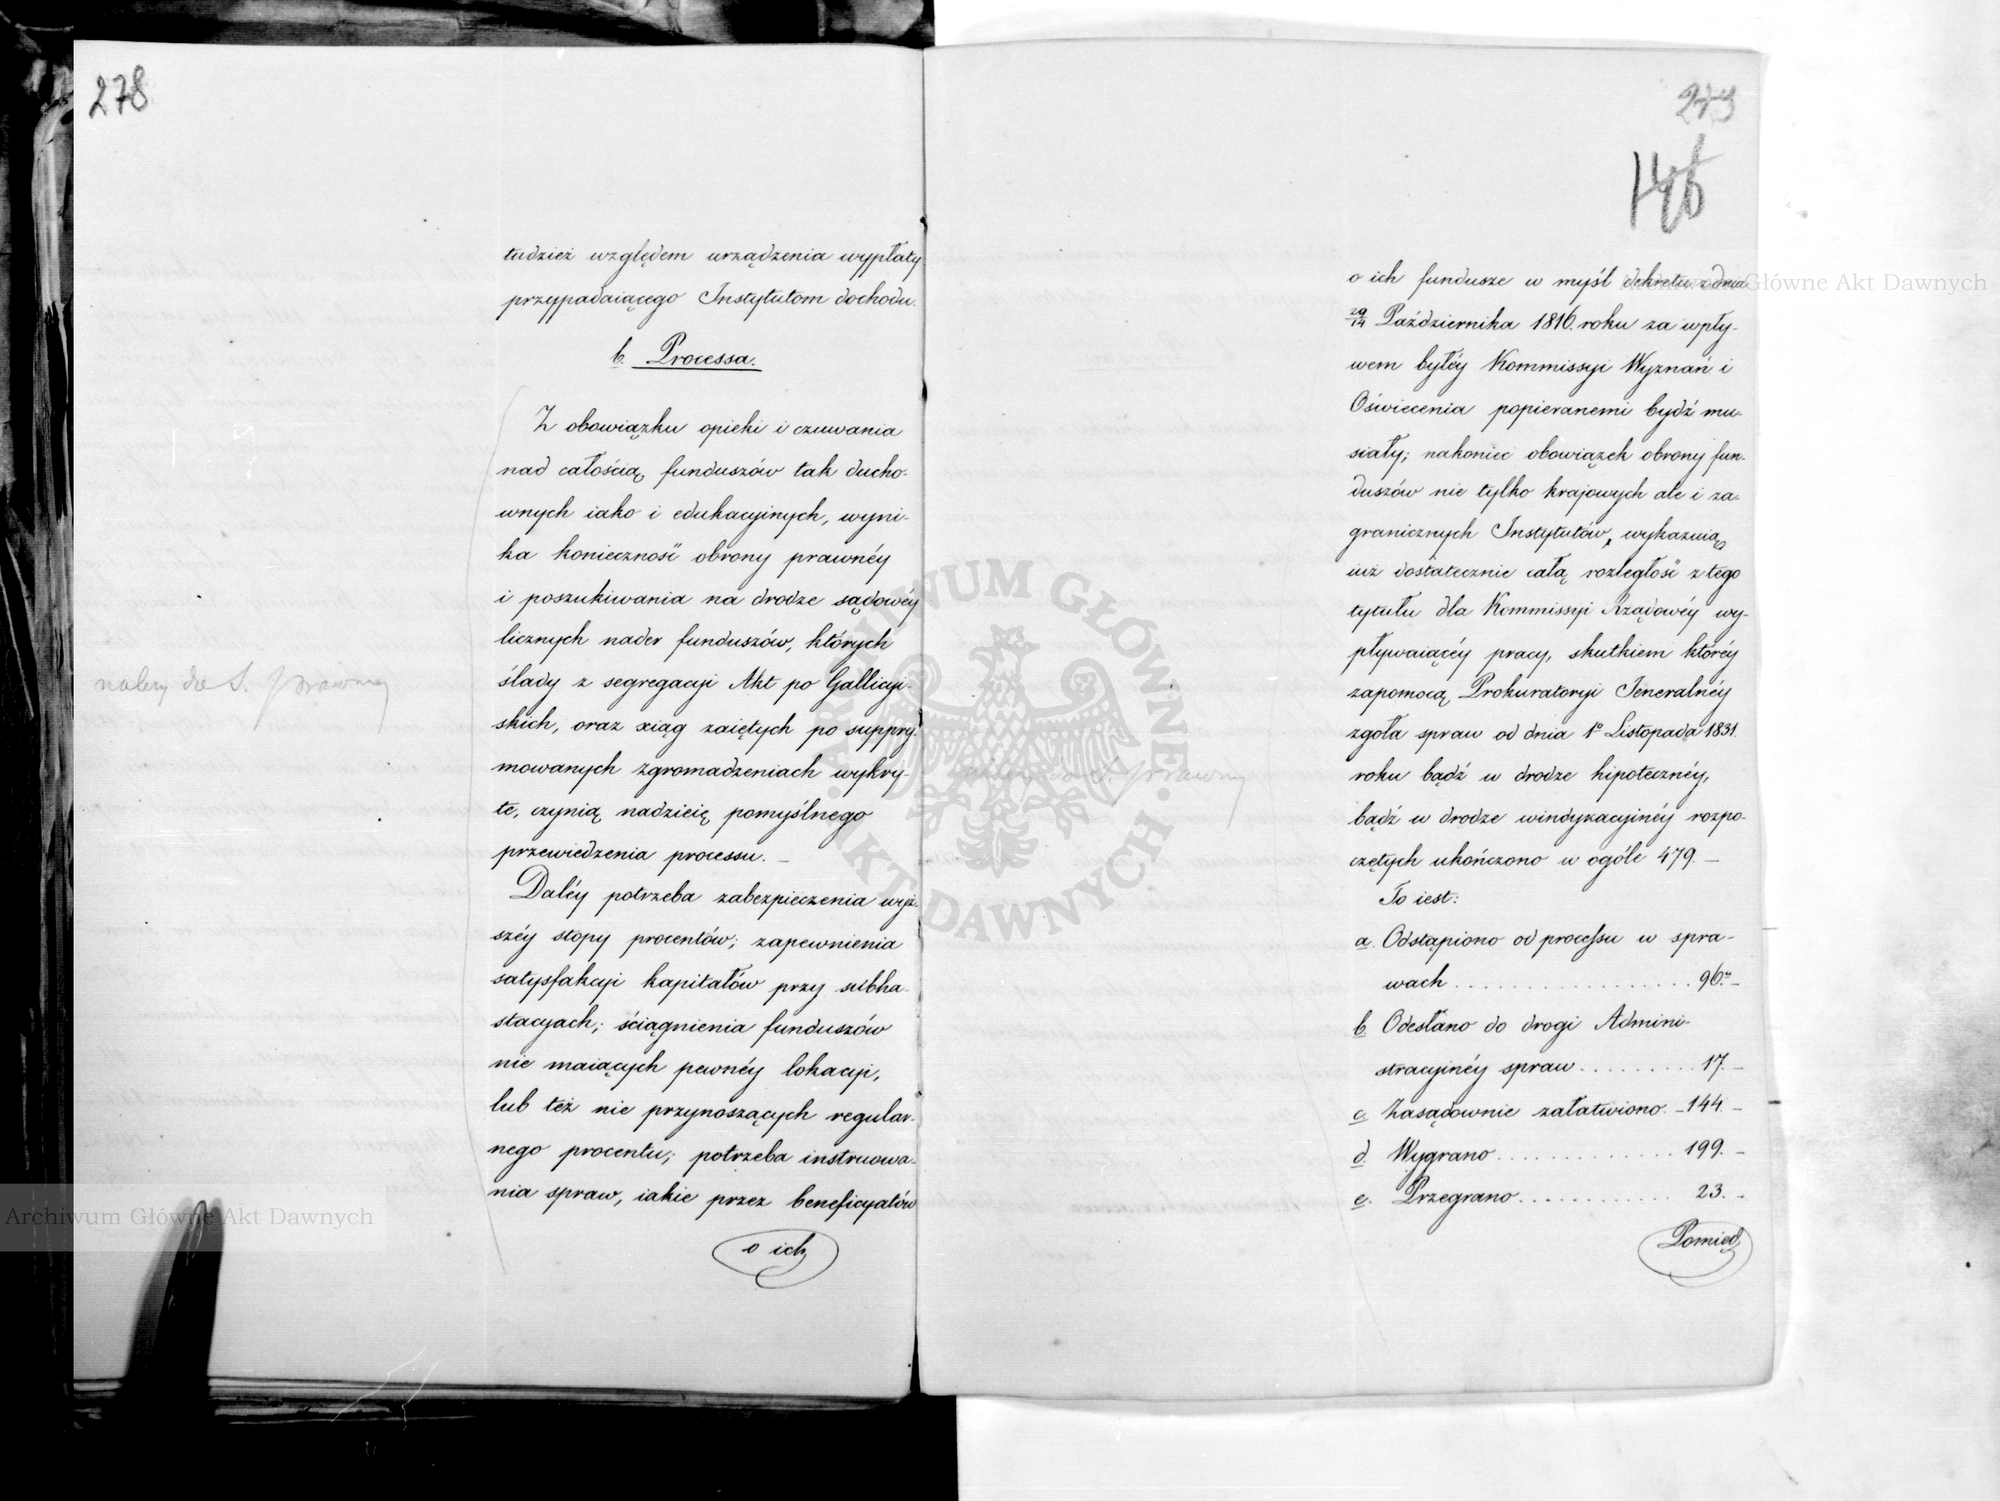 278
tudzież względem urządzenia wypłaty
przypadaiącego Instytutom dochodu.
b. Processa.
Z obowiązku opieki i czuwania
nad całością funduszów tak ducho-
wnych iako i edukacyinych, wyni-
ka konieczność obrony prawnéy
i poszukiwania na drodze sądowéy
licznych nader funduszów, których
ślady z segregacyi Akt po Gallicyi-
skich, oraz xiąg zaiętych po suppry-
mowanych zgromadzeniach wykry-
te, czynią nadzieię pomyślnego
przewiedzenia processu. —
Daléy potrzeba zabezpieczenia wyż-
széy stopy procentów; zapewnienia
satysfakcyi kapitałów przy subha-
stacyach; ściągnienia funduszów
nie maiących pewnéy lokacyi,
lub też nie przynoszących regular-
nego procentu; potrzeba instruowa-
nia spraw, iakie przez beneficyatów
o ich
należy do S. prawney
279
146
o ich fundusze w myśl dekretu z dnia
29/14 Października 1816. roku za wpły-
wem byłéy Kommissyi Wyznań i
Oświecenia popieranemi bydź mu-
siały; nakoniec obowiązek obrony fun-
duszów nie tylko krajowych ale i za-
granicznych Instytutów, wykazuią
iuż dostatecznie całą rozległość z tego
tytułu dla Kommissyi Rządowéy wy-
pływaiącéy pracy, skutkiem któréy
zapomocą Prokuratoryi Jeneralnéy
zgoła spraw od dnia 1º Listopada 1831.
roku bądź w drodze hipotecznéy,
bądź w drodze windykacyinéy rozpo-
czętych ukończono w ogóle 479. —
To iest:
a. Odstąpiono od processu w spra-
wach . . . . . . . . . . . . . . . . . 96. —
b. Odesłano do drogi Admini-
stracyinéy spraw . . . . . . . . . 17. —
c. Zasądownie załatwiono. — 144. —
d. Wygrano . . . . . . . . . . . . . 199. —
e. Przegrano . . . . . . . . . . . . 23. —
Pomięd
Archiwum Główne Akt Dawnych
Archiwum Główne Akt Dawnych
ARCHIWUM GŁÓWNE AKT DAWNYCH